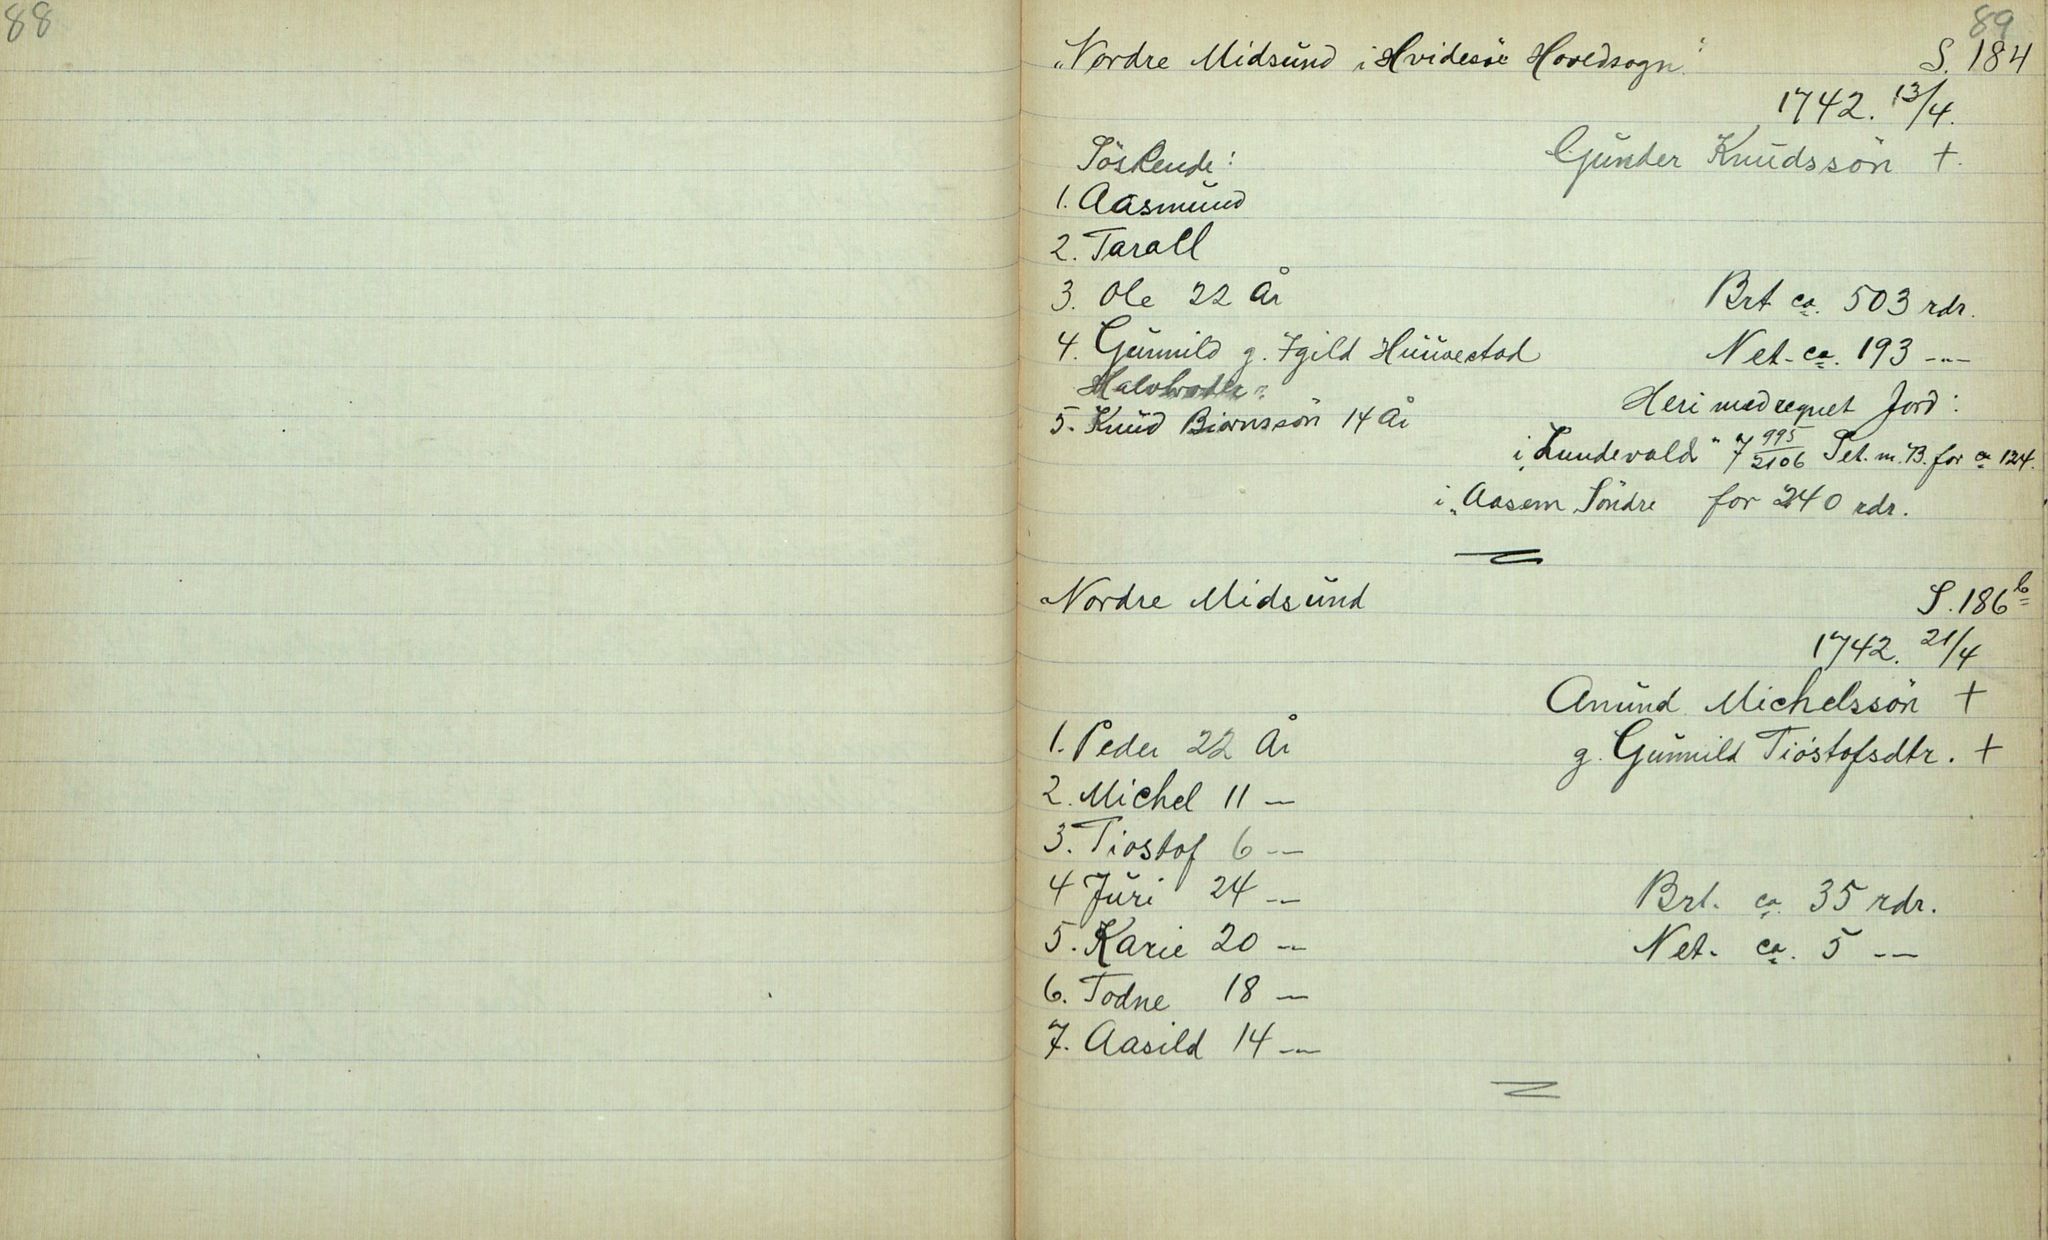 88
89
"Nordre Midsund i Hvidesöe Hovedsogn" S. 184
1742. 13/4.
Söskende: Gunder Knudssön +.
1. Aasmund
2. Tarall
3. Ole 22 År Brt ca. 503 rdr.
4. Gunnild g. Egild Huuvestad Net. ca. 193 -"-
Halvbroder:
Heri medregnet Jord:
5. Knud Biørnssön 14 År
i "Lundevald" 7 995/2106 Set. m. B. for ca 124.
i "Aasem Söndre for 240 rdr.
Nordre Midsund S. 186 b
1742. 21/4
Amund Michelssön +
1. Peder 22 År g. Gunnild Tiöstofsdtr. +
2. Michel 11 -"-
3. Tiostof 6 -"-
4 Juri 24 -"- Brt. ca. 35 rdr.
5. Karie 20 -"- Net. ca. 5 -"-
6. Todne 18 -"-
7. Aasild 14 -"-